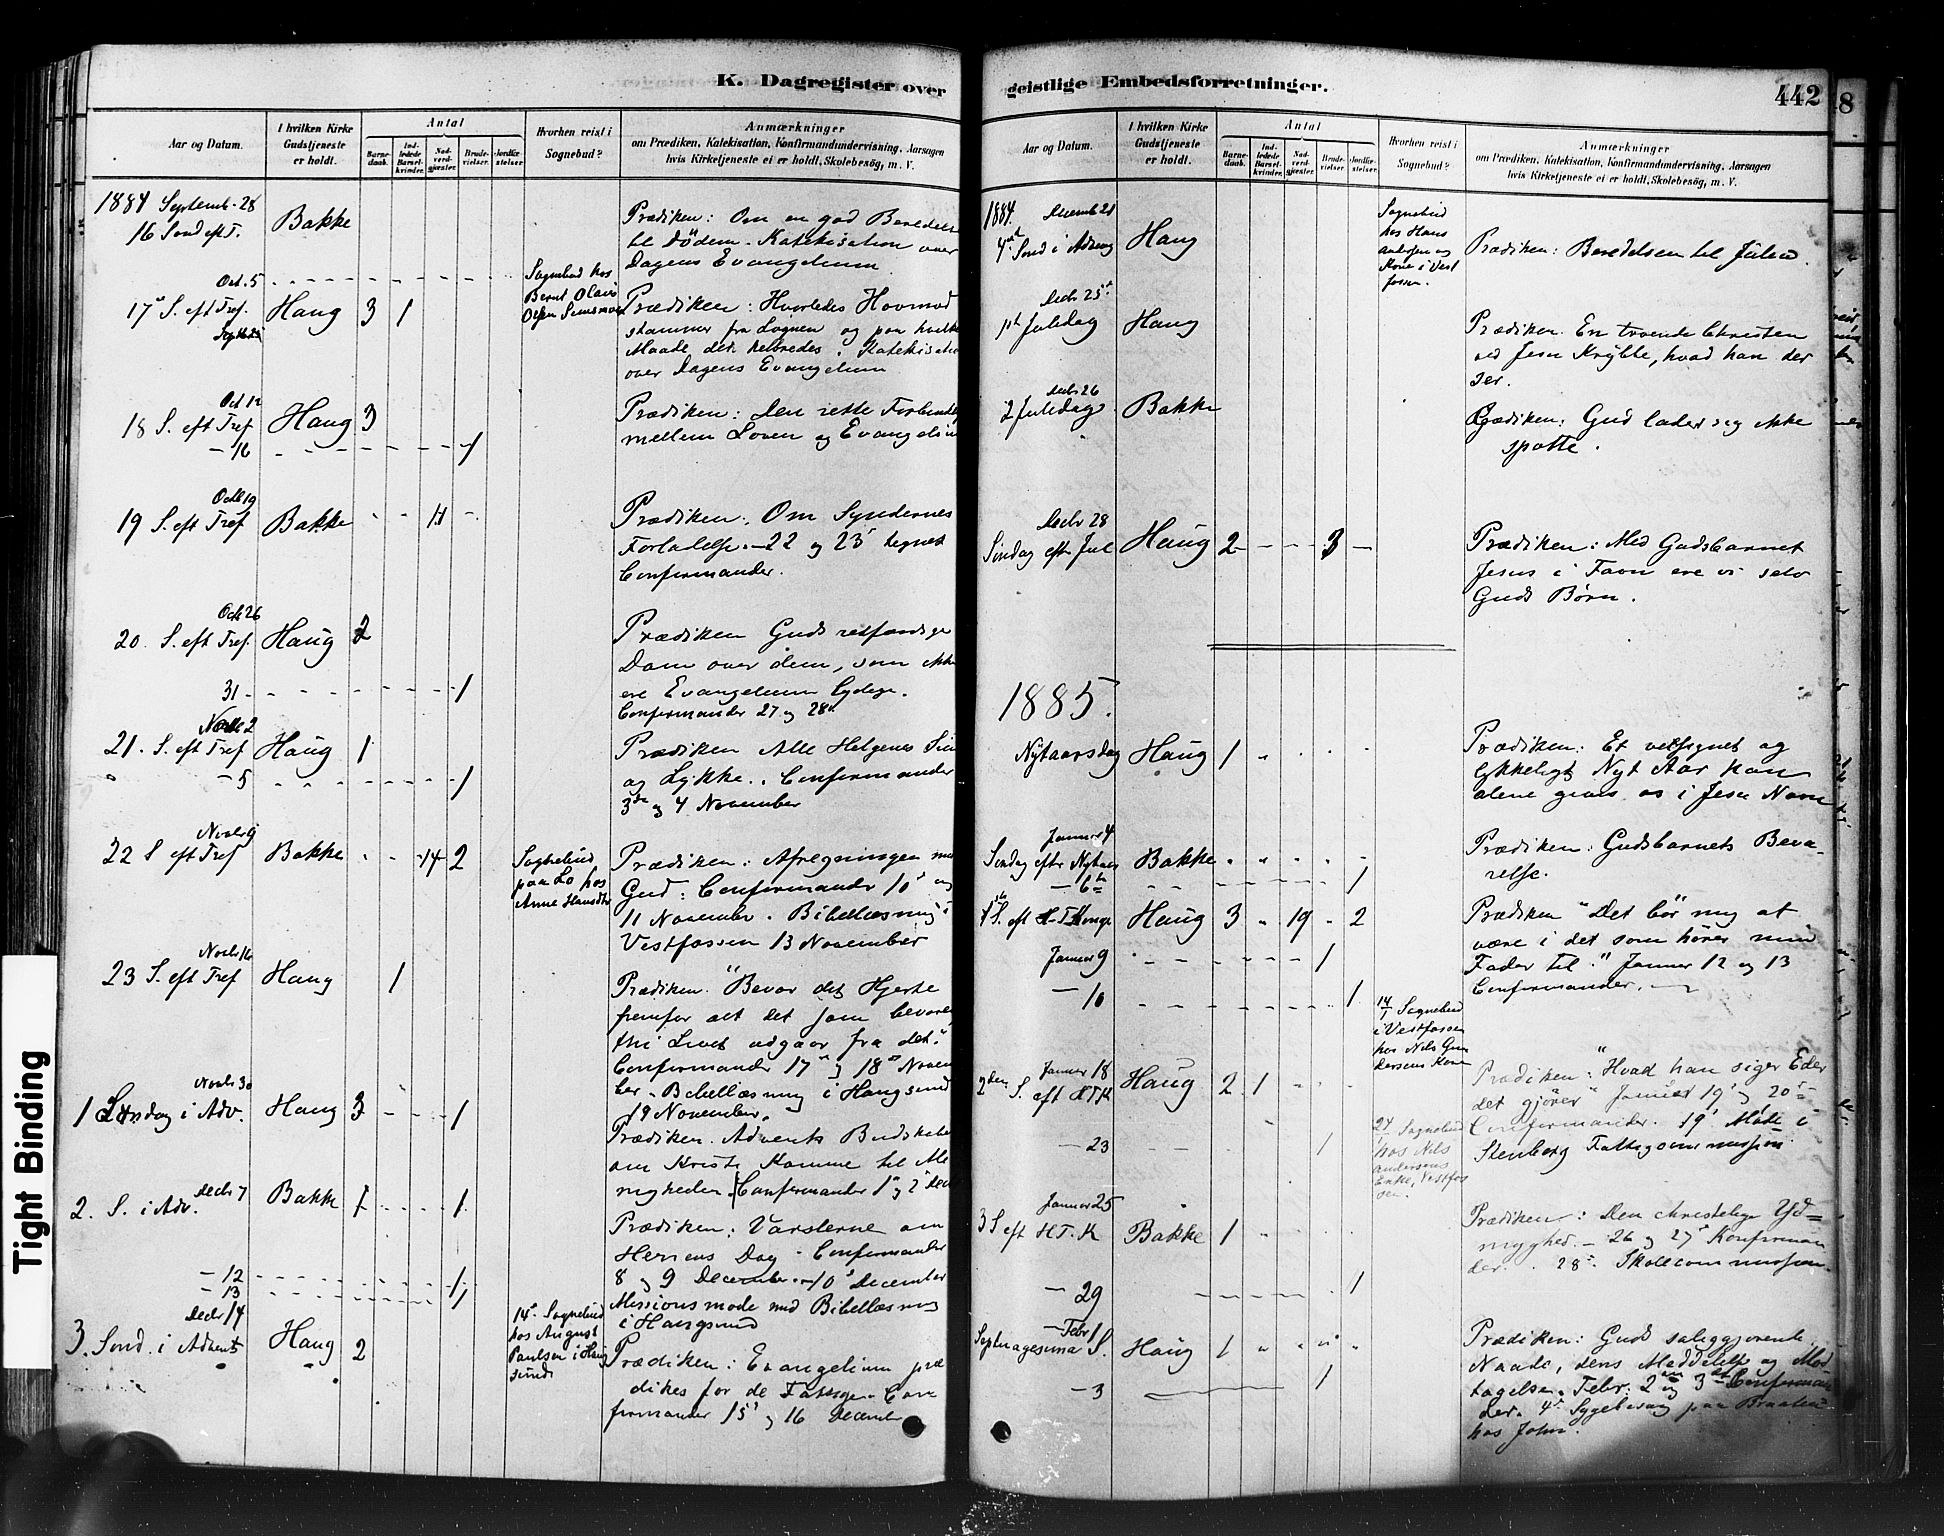 K. Dagregister over
Aar og Datum.
I hvilken Kirke Gudstjeneste er holdt.
Antal
Barne-daab.
Ind-ledede Barsel-kvinder.
Nad-verd-gjæster.
Brude-vielser.
Jordfæ-stelser
Hvorhen reist i Sognebud?
Anmærkninger
om Prædiken, Katekisation, Konfirmandundervisning, Aarsagen
hvis Kirketjeneste ei er holdt, Skolebesög, m. V.
1884 Septemb. 28
16 Sond eft T. Bakke
Prædiken: Om en god Beredelse
til Döden. Katekisation over
Dagens Evangelium
Oct. 5
17 S. eft Tref. Haug 3 1
Sognebud hos
Bernt Olavs
Olsen
Prædiken: Hvorledes Hovmod
stammer fra Løgnen og paa hvilke
Maade det helbredes. Katekisation
over Dagens Evangelium
Oct 12
18 S. eft Tref Haug 3
Prædiken: Den rette Forbindelse
mellem Loven og Evangeliu
— 16 1
Octb 19
19 S. eft Tref Bakke 11
Prædiken. Om Syndernes
Forladelse. — 22 og 23 tegnet
Confirmander.
Octb 26
20. S. eft Tref. Haug 2
Prædiken Guds retfærdige
Dom over dem, som ikke
ere Evangelium lydige.
Confirmander 27 og 28
31 1
Novbr 2
21. S. eft Tref Haug 1
Prædiken Alle Helgenes
og Lykke. Confirmander
3die og 4 November
— 5 1
Novbr 9
22 S eft Tref Bakke 14 2
Sognebud
paa Lo hos
Anne Hansdtr
Prædiken: Afregningen med
Gud: Confirmander 10 og
11 November. Bibellæsning i
Vestfossen 13 November
Novbr 16
23 S. eft Tref Haug 1
Prædiken. "Bevar dit Hjerte
fremfor alt det som bevares
thi Livet udgaar fra det."
Confirmander 17 og 18 Novem
ber. Bibellæsning i Haugsund
19 November.
Novbr 30
1 Søndag i Adv. Haug 3 1
Prædiken. Advents Budskabet
om Kristi Komme til Me
nigheden. Confirmander 1 og 2 Dec
Decbr 7
2. S. i Adv. Bakke 1 1
Prædiken: Varslerne om
Herrens Dag. Confirmander
8 og 9 December. 10 December
Missionsmøde med Bibellæsning
i Haugsund
— 12 1
— 13 1
Decbr 14
3. Sond. i Advent Haug 2
14 Sognebud
hos August
Paulsen i Haug
sund
Prædiken: Evangelium præ
dikes for de Fattige. Con
firmander 15 og 16 December
geistlige Embedsforretninger.
442
8
Aar og Datum.
I hvilken Kirke Gudstjeneste er holdt.
Antal
Barne-daab.
Ind-ledede Barsel-kvinder.
Nad-verd-gjæster.
Brude-vielser.
Jordfæ-stelser.
Hvorhen reist i Sognebud?
Anmærkninger
om Prædiken, Katekisation, Konfirmandundervisning, Aarsagen
hvis Kirketjeneste ei er holdt, Skolebesög, m. V.
1884. Decemb 21
4de Sond i Advent Haug
Sognebud
hos Hans
Andersen og
Kone i Vest
fossen.
Prædiken: Beredelsen til Julen.
Decbr 25
1ste Juledag Haug
Prædiken. En troende Christen
ved Jesu Krybbe, hvad han der
ser.
Decbr 26
2 Juledag Bakke
Prædiken: Gud lader sig ikke
spotte.
Decbr 28
Søndag eft Jul Haug 2 3
Prædiken: Med Gudsbarnet
Jesus i Favn ere vi selv
Guds Børn.
1885.
Nytaarsdag Haug 1
Prædiken: Et velsignet og
lykkeligt Nyt Aar kan
alene gives os i Jesu Navn
Januar 4
Søndag efter Nytaar Bakke
Prædiken: Gudsbarnets Beva-
relse.
— 6te 1
1ste S. eft H. T. Konge Haug 3 19 2
Prædiken "Det bør mig at
være i det som hører min
Fader til." Januar 12 og 13
Confirmander.
Januar 9 1
— 10 1
14/1 Sognebud
i Vestfossen
hos Nils Gun
dersens Kone
Januar 18
2den S. eft H T K Haug 2 1
Prædiken: "Hvad han siger Eder
det gjører" Januar 19 og 20
Confirmander. 19 Møde i
Stenberg Fattigcommission
— 23 1
24/1 Sognebud
hos Nils
Andersens
Enke, Vestfos
sen.
Januar 25
3 S eft H.T.K Bakke 1
Prædiken: Den christelige Yd=
myghed. — 26 og 27 Konfirman
der. 28 Skolecommission.
— 29 1
— Febr 1
Septuagesima S. Haug 1
Prædiken: Guds saliggjørende
Naade, dens Meddelelse og Mod
tagelse. Febr: 2den og 3die Confirman
der. 4 Sygebesøg paa Braaten
hos John.
— 3 1
Tight Binding